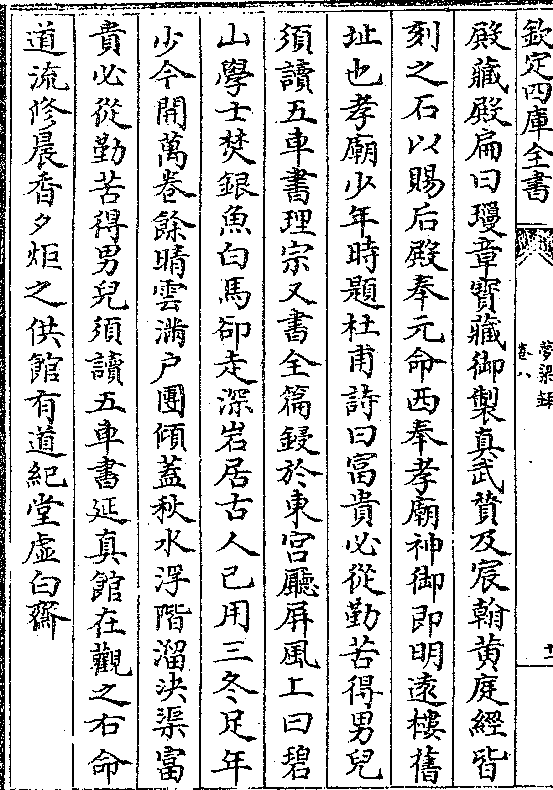 欽定四庫全書
夢粱録
卷八
殿藏殿扁曰瓊章寳藏御製真武賛及宸翰黄庭經皆
刻之石以賜后殿奉元命西奉孝廟神御即明遠樓舊
址也孝廟少年時題杜甫詩曰富貴必從勤苦得男兒
須讀五車書理宗又書全篇鋟於東宫廳屏風上曰碧
山學士焚銀魚白馬卻走深岩居古人已用三冬足年
少今開萬卷餘晴雲滿户團傾葢秋水浮階溜决渠富
貴必從勤苦得男兒須讀五車書延真館在觀之右命
道流修晨香夕炬之供館有道紀堂虚白齋